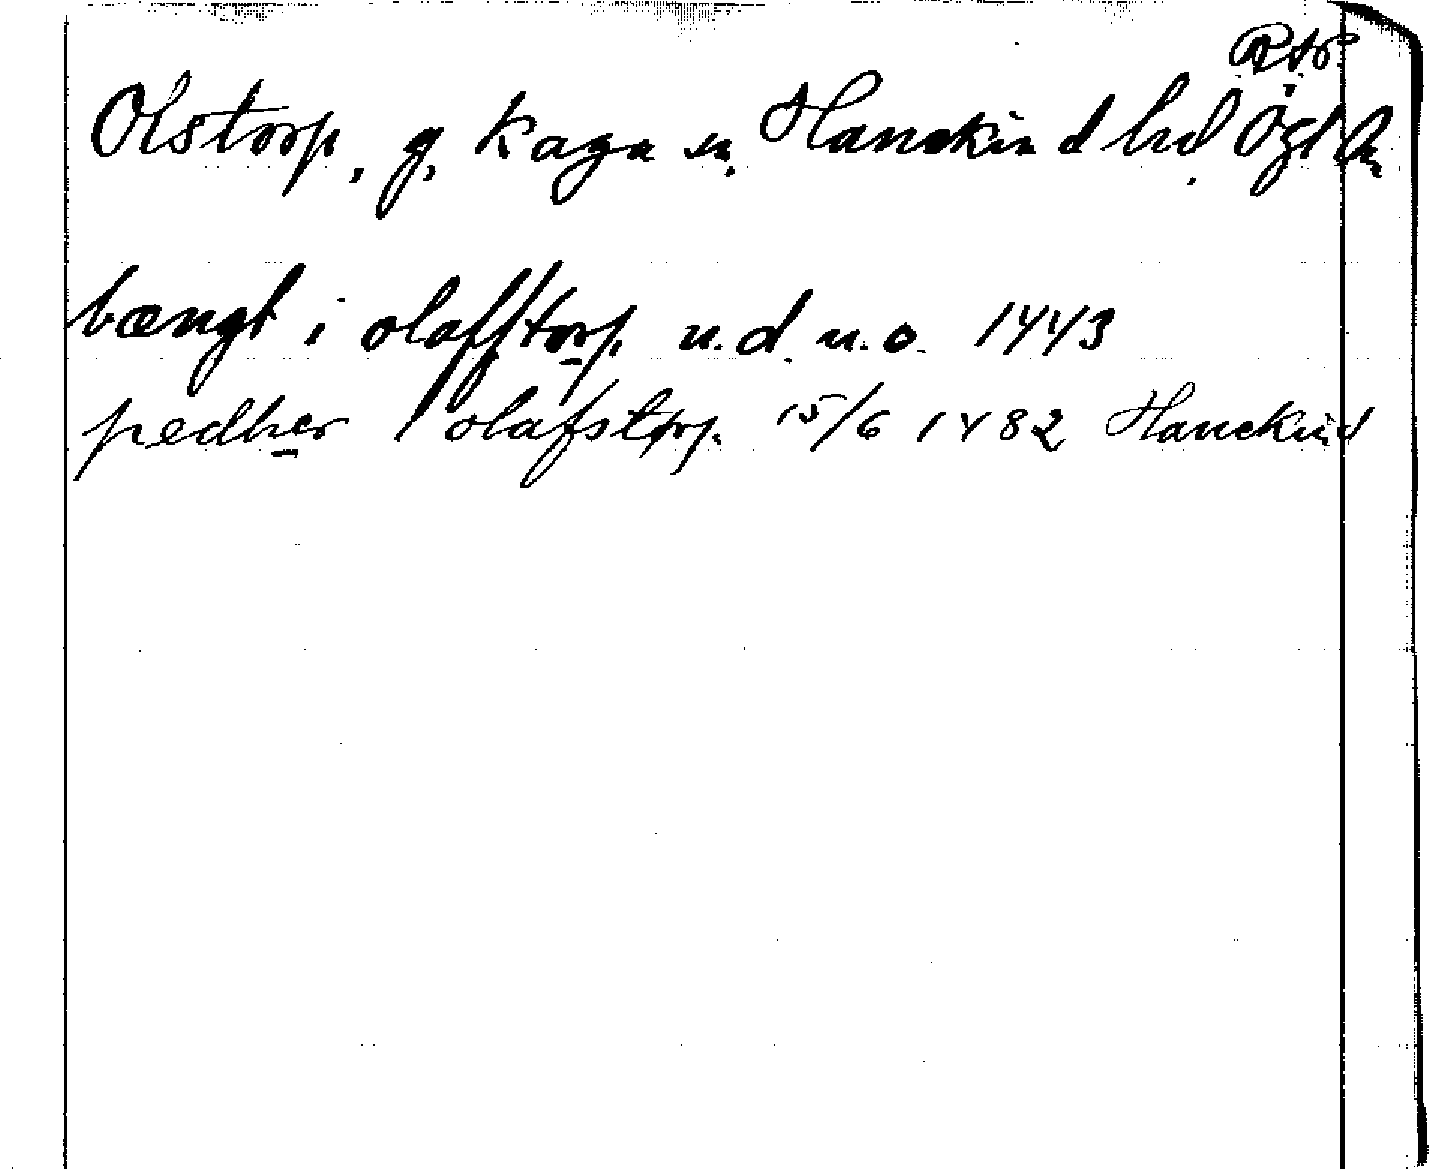 Olstorp, g, Kaga sn. Hanekind hd. Ögl.
bængt i olaffstorp u.d. u.o. 1443
pedher i olafstorp. 15/6 1482 Hanekind